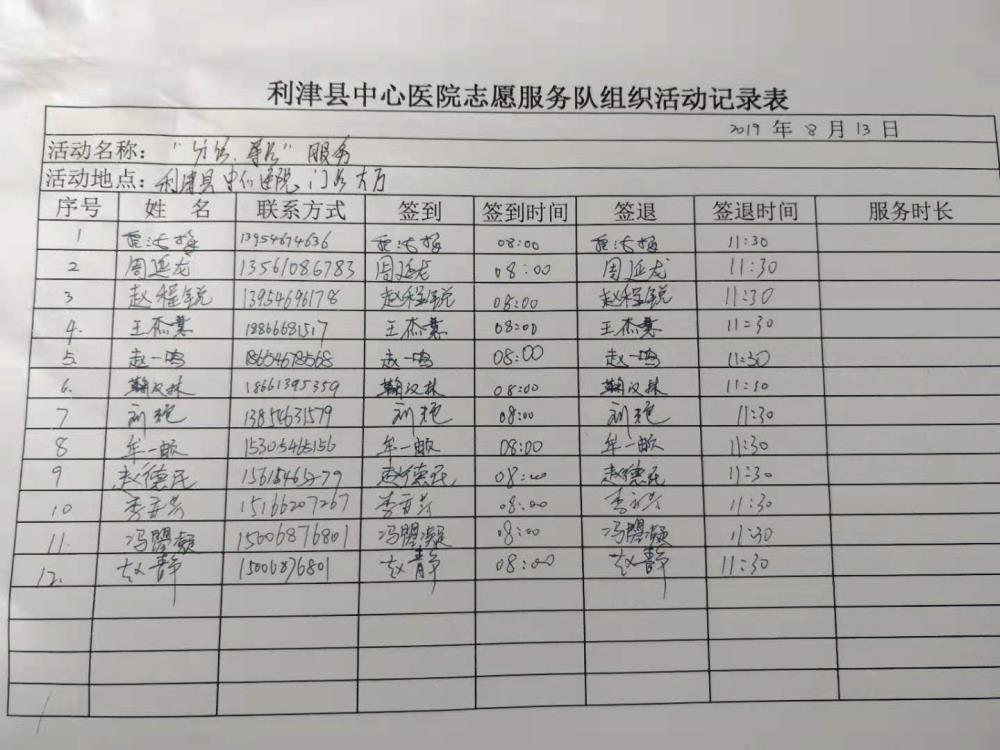 利津县中心医院志愿服务队组织活动记录表
2019 年 8 月 13 日
活动名称: "分诊、导诊" 服务
活动地点: 利津县中心医院 门诊大厅
序号 姓 名 联系方式 签到 签到时间 签退 签退时间 服务时长
1 13954674636 08:00 11:30
2 周延龙 13561086783 周延龙 08:00 周延龙 11:30
3 赵程锐 13954696178 赵程锐 08:00 赵程锐 11:30
4. 王杰 18866681517 王杰 08:00 王杰 11:30
5. 赵一鸣 18654678568 赵一鸣 08:00 赵一鸣 11:30
6. 18661395359 08:00 11:30
7 刘艳 13854631579 刘艳 08:00 刘艳 11:30
8 牟一敏 15305465156 牟一敏 08:00 牟一敏 11:30
9 赵德民 08:00 赵德民 11:30
10 15166207267 08:00 11:30
11. 冯 凝 15006876801 冯 凝 08:00 冯 凝 11:30
12. 赵静 赵静 08:00 赵静 11:30